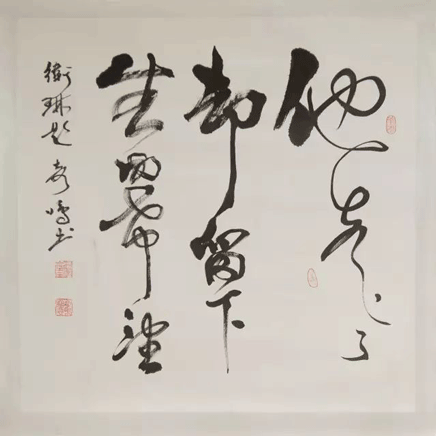 他走了
却留下
生的希望
衛琳题 鸣书